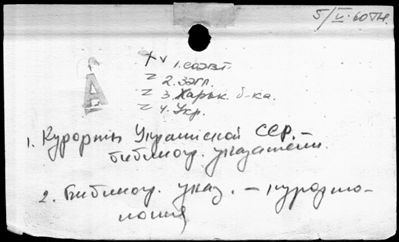 5/V-60 г.
+ v 1. соавт.
z 2. загл.
z 3. Харьк. б-ка.
z 4. Укр.
А
1. Курорты Украинской ССР. –
библиогр. указатели.
2. Библиогр. указ. – курорто-
логия